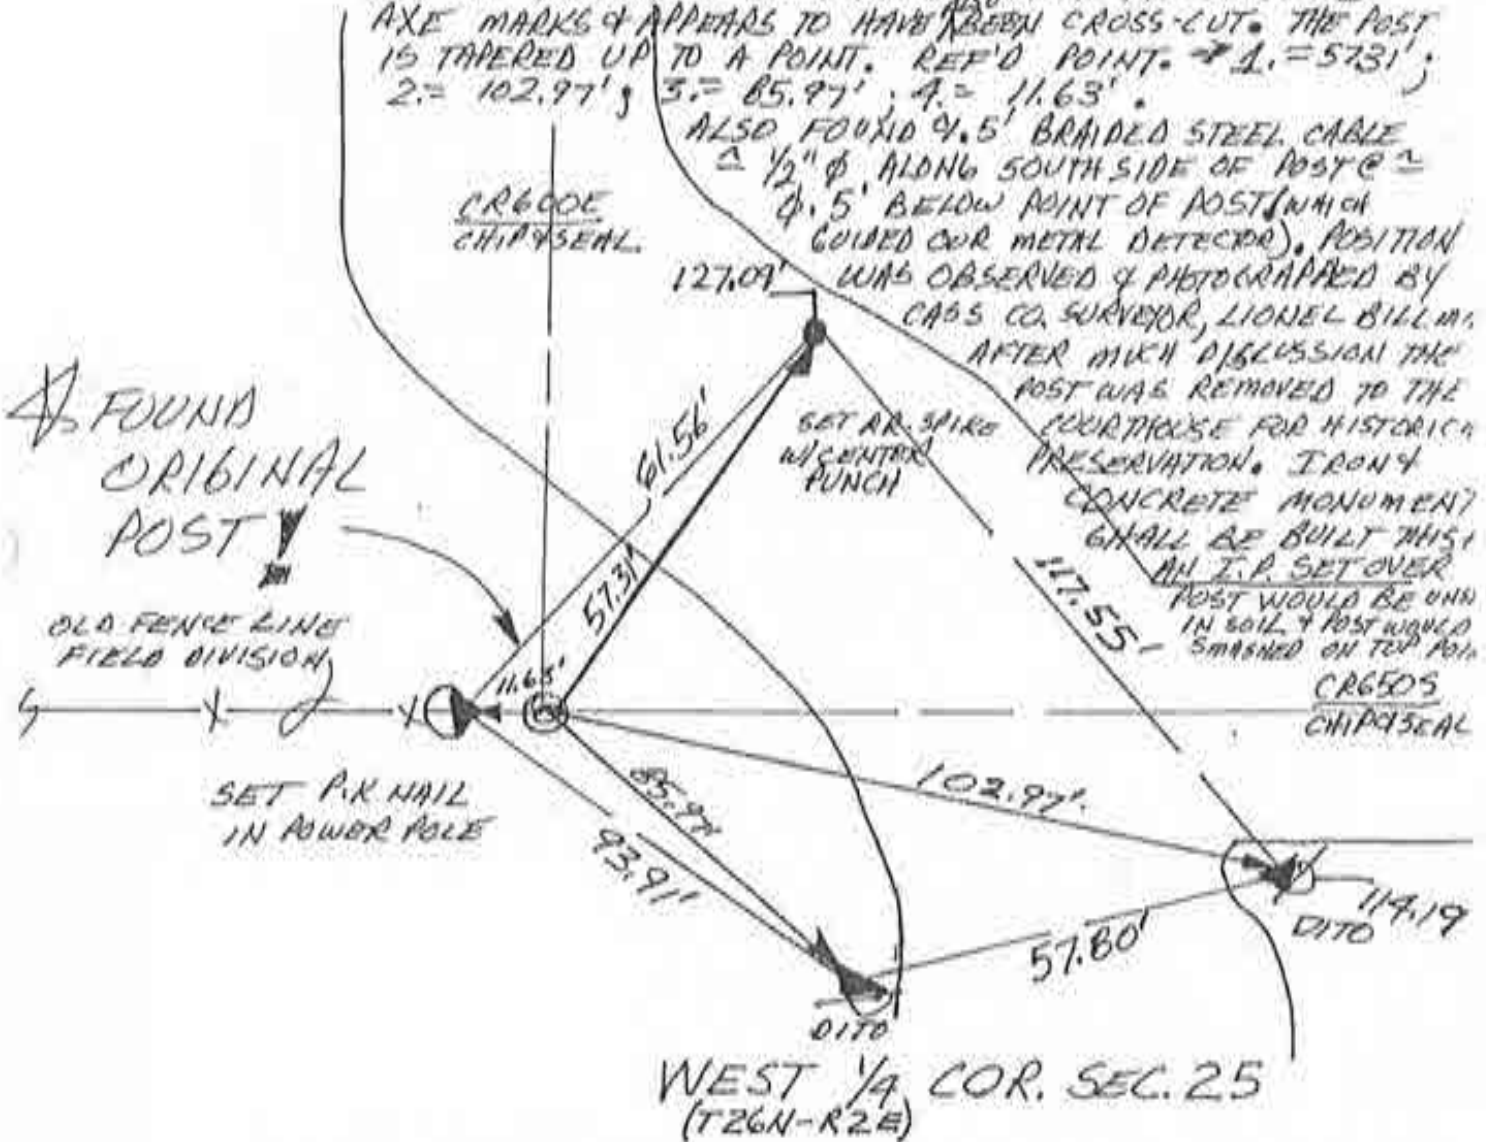 ALSO
AXE MARKS & APPEARS TO HAVE BEEN CROSS-CUT. THE POST
IS TAPERED UP TO A POINT. REF'D POINT. → 1.=57.31';
2.= 102.97'; 3.= 85.97'; 4.= 11.63'.
ALSO FOUND 4.5' BRAIDED STEEL CABLE
≅ 1/2" φ ALONG SOUTH SIDE OF POST @ ≅
0.5' BELOW POINT OF POST (WHICH
GUIDED OUR METAL DETECTOR). POSITION
WAS OBSERVED & PHOTOGRAPHED BY
CASS CO. SURVEYOR, LIONEL
AFTER MUCH DISCUSSION THE
POST WAS REMOVED TO THE
COURTHOUSE FOR
PRESERVATION. IRON &
CONCRETE
SHALL BE BUILT
AN I.P. SET OVER
POST WOULD BE
IN SOIL & POST WOULD
SMASHED ON TOP
CR600E
CHIP & SEAL
127.09'
FOUND
ORIGINAL
POST
61.56'
57.31'
SET RR. SPIKE
W/CENTER
PUNCH
117.55'
OLD FENCE LINE
FIELD DIVISION
11.63'
X
X
CR650S
CHIP & SEAL
SET P.K NAIL
IN POWER POLE
85.97'
93.91'
102.97'
114.19
DITO
57.80'
DITO
WEST 1/4 COR. SEC. 25
(T26N-R2E)